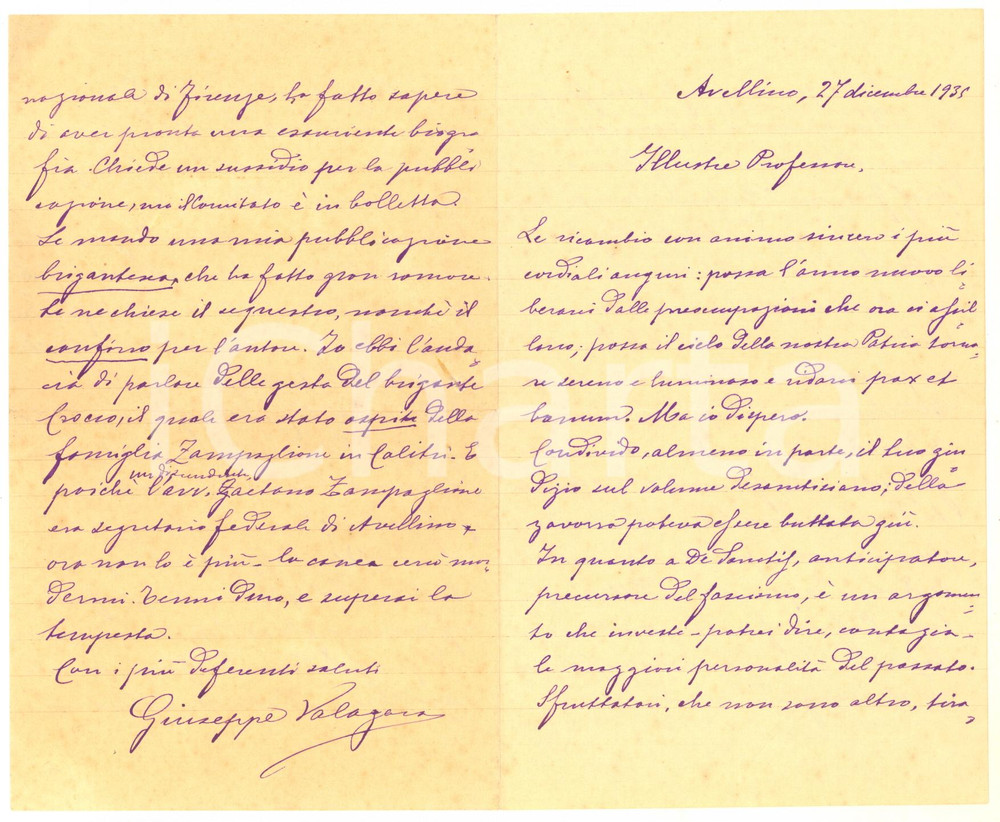 Avellino, 27 dicembre 1935
Illustre Professore,
Le ricambio con animo sincero i più
cordiali auguri: possa l'anno nuovo li=
berarci dalle preoccupazioni che ora ci assil=
lano; possa il cielo della nostra Patria torna=
re sereno e luminoso e ridarci pax et
bonum. Ma io dispero.
Condivido, almeno in parte, il Suo giu=
dizio sul volume desanctisiano; della
zavorra poteva essere buttata giù.
In quanto a De Sanctis, anticipatore,
precursore del fascismo, è un argomen=
to che investe - potrei dire, contagia -
le maggiori personalità del passato.
Sfruttatori, che non sono altro, tira=
nazionale di Firenze, ha fatto sapere
di aver pronta una esauriente biogra
fia. Chiede un sussidio per la pubbli
cazione, ma il Comitato è in bolletta.
Le mando una mia pubblicazione
brigantesca, che ha fatto gran rumore.
Se ne chiese il sequestro, nonché il
confino per l'autore. Io ebbi l'auda=
cia di parlare delle gesta del brigante
Crocco, il quale era stato ospite della
famiglia Zampaglione in Calitri. E
un discendente,
poiché l'avv. Gaetano Zampaglione
era segretario federale di Avellino -
ora non lo è più - la canea cercò mor=
dermi. Tenni duro, e superai la
tempesta.
Con i più deferenti saluti
Giuseppe Valagara
iCharta